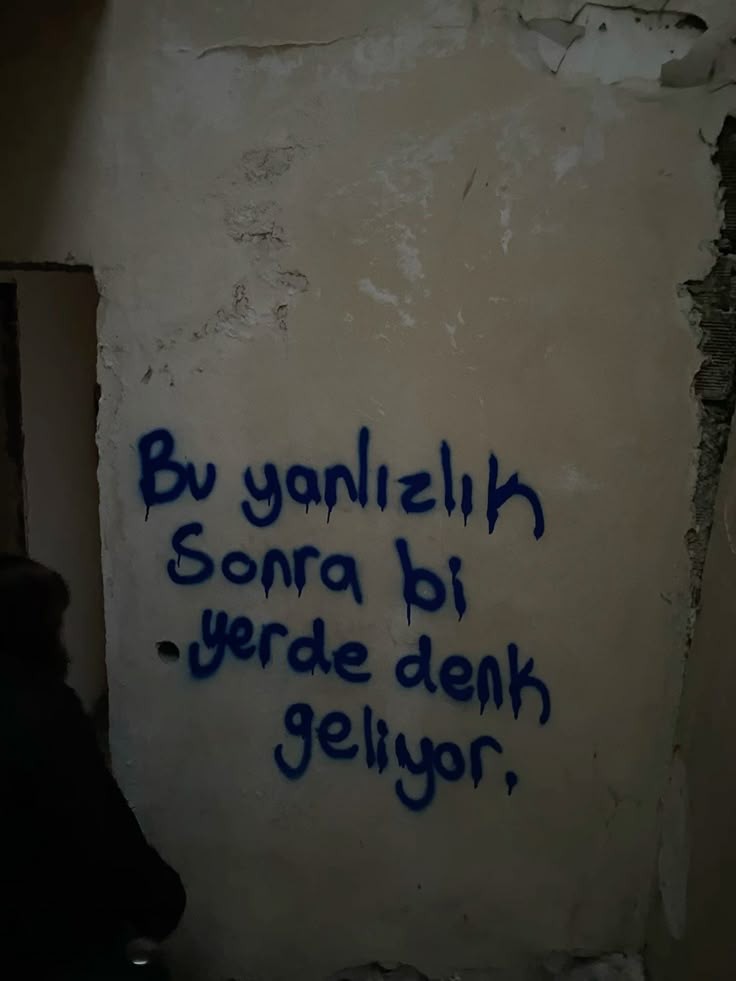 Bu yanlızlık
Sonra bi
yerde denk
geliyor.